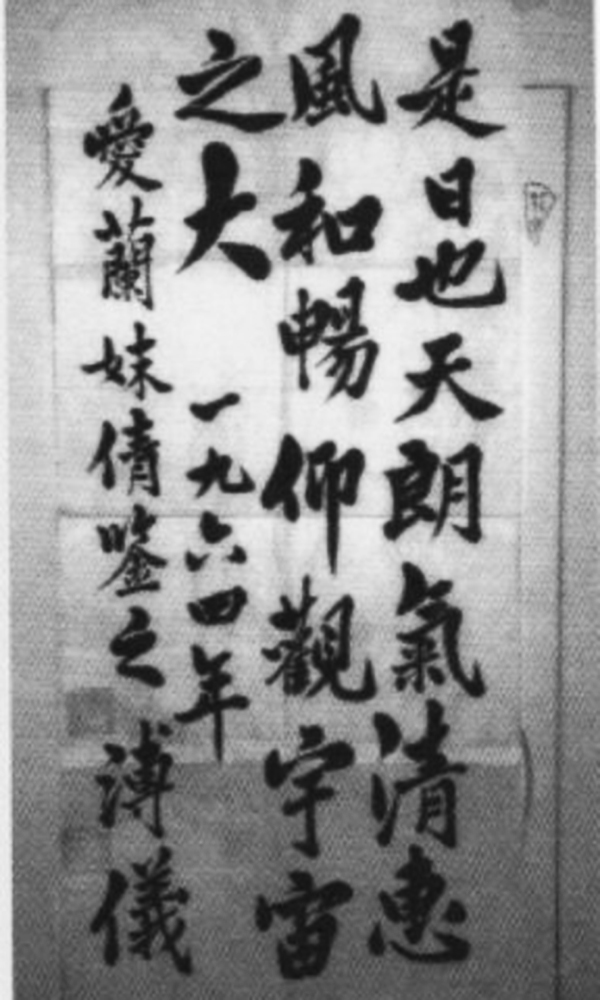 是日也天朗氣清惠
風和暢仰觀宇宙
之大 一九六四年
愛蘭妹倩鑒之 溥儀